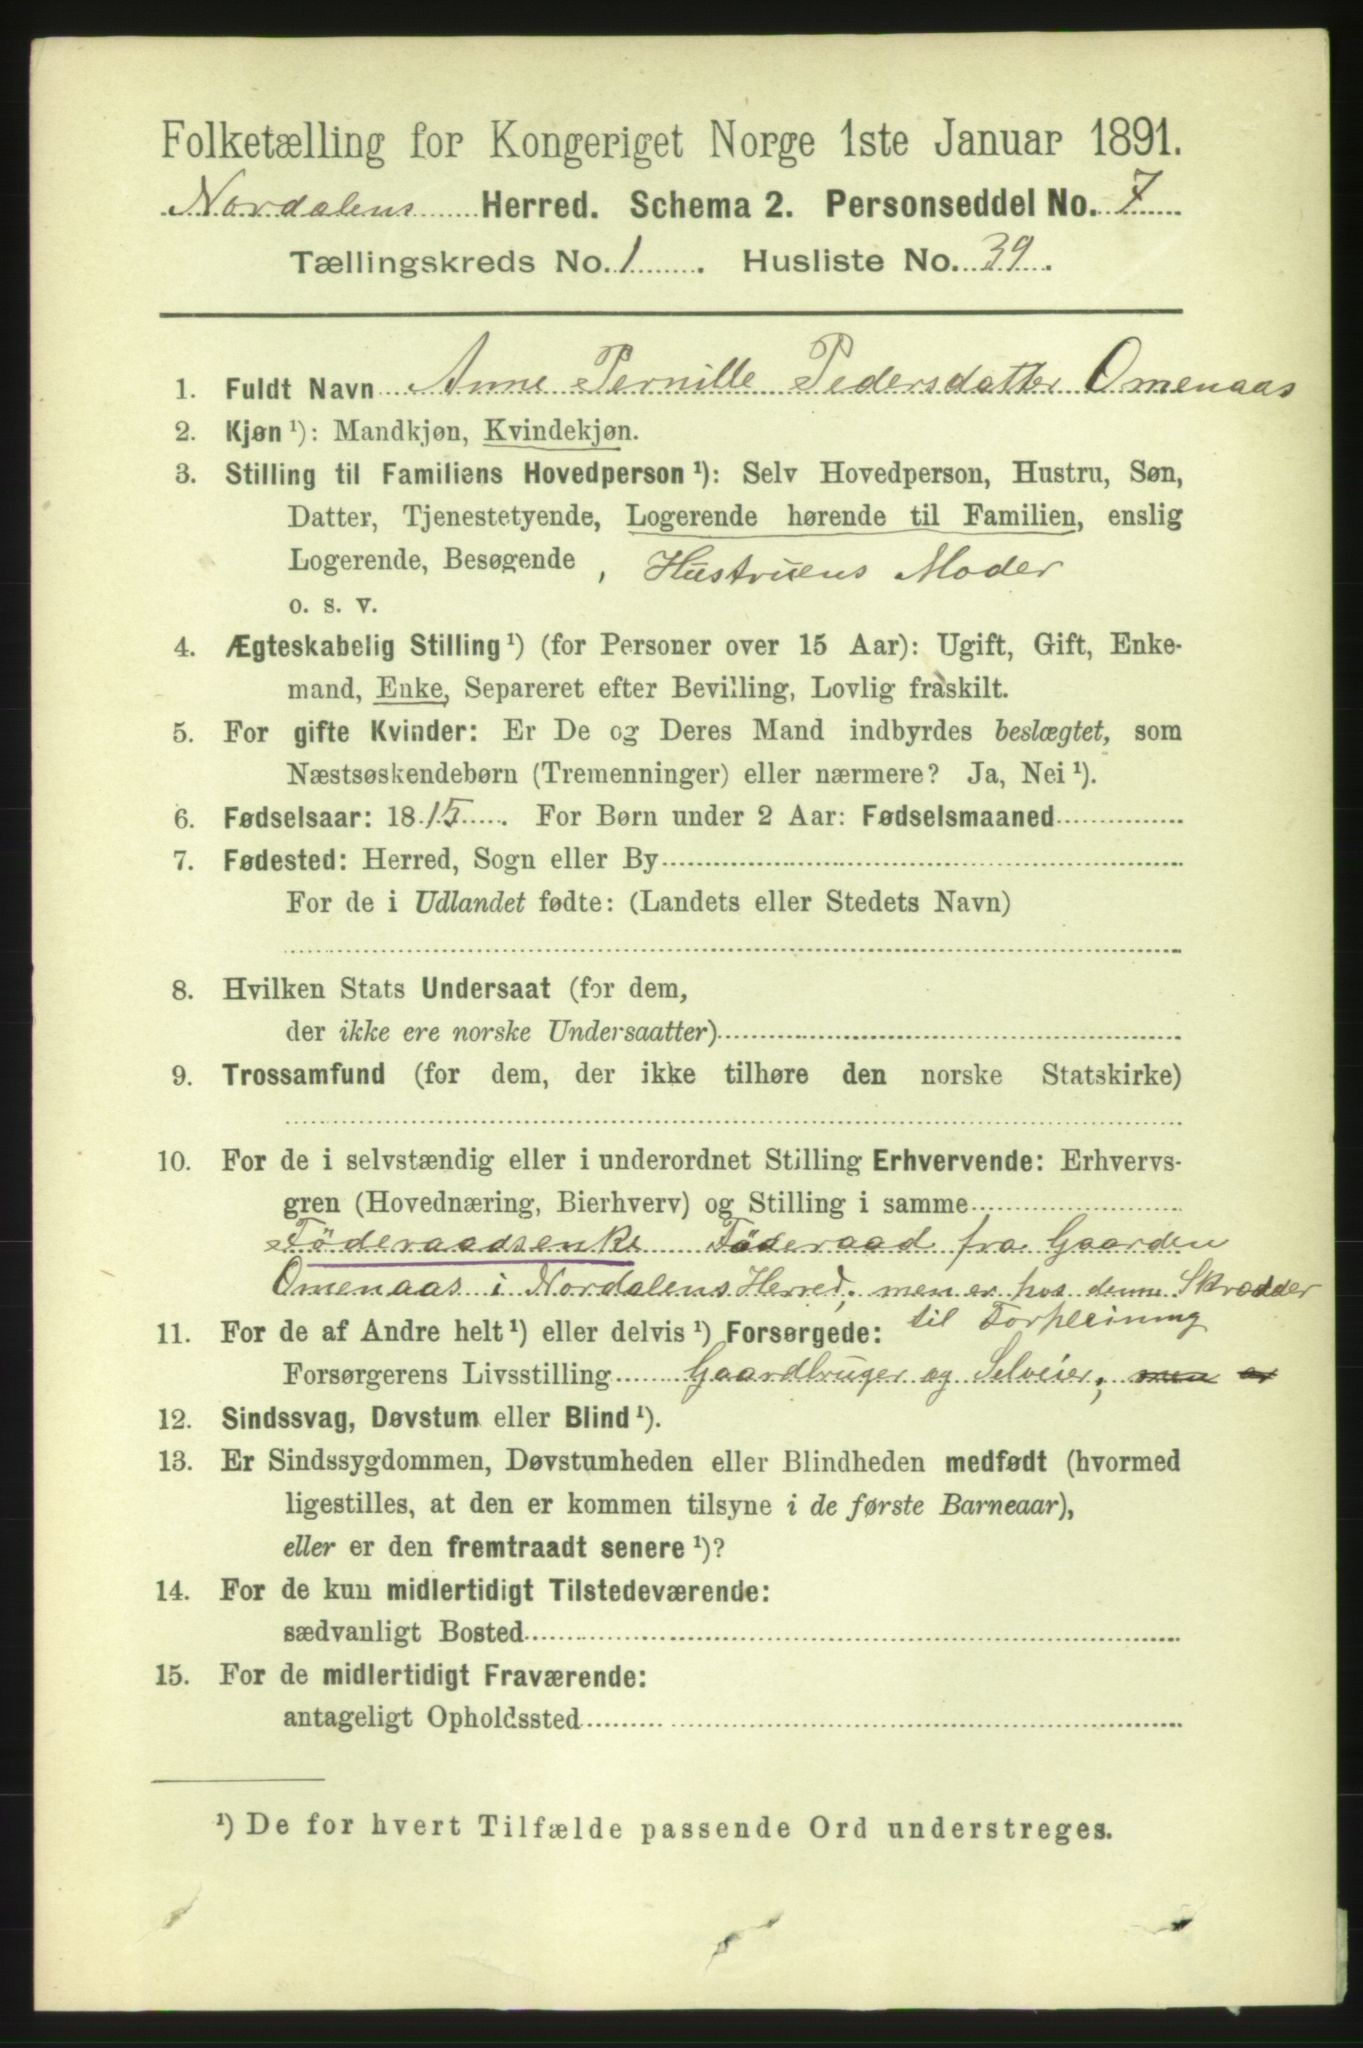 Folketælling for Kongeriget Norge 1ste Januar 1891.
Nordalens Herred. Schema 2. Personseddel No. 7
Tællingskreds No. 1. Husliste No. 39.
1. Fuldt Navn Anne Pernille Pedersdatter Omenaas
2. Kjøn ¹): Mandkjøn, Kvindekjøn.
3. Stilling til Familiens Hovedperson ¹): Selv Hovedperson, Hustru, Søn,
Datter, Tjenestetyende, Logerende hørende til Familien, enslig
Logerende, Besøgende , Hustruens Moder
o. s. v.
4. Ægteskabelig Stilling ¹) (for Personer over 15 Aar): Ugift, Gift, Enke-
mand, Enke, Separeret efter Bevilling, Lovlig fraskilt.
5. For gifte Kvinder: Er De og Deres Mand indbyrdes beslægtet, som
Næstsøskendebørn (Tremenninger) eller nærmere? Ja, Nei ¹).
6. Fødselsaar: 1815. For Børn under 2 Aar: Fødselsmaaned
7. Fødested: Herred, Sogn eller By
For de i Udlandet fødte: (Landets eller Stedets Navn)
8. Hvilken Stats Undersaat (for dem,
der ikke ere norske Undersaatter)
9. Trossamfund (for dem, der ikke tilhøre den norske Statskirke)
10. For de i selvstændig eller i underordnet Stilling Erhvervende: Erhvervs-
gren (Hovednæring, Bierhverv) og Stilling i samme
Föderaadsenke Föderaad fra Gaarden
Omenaas i Nordalens Herred, men er hos denne Skrædder
til Forpleining
11. For de af Andre helt ¹) eller delvis ¹) Forsørgede:
Forsørgerens Livsstilling Gaardbruger og Selveier, men er
12. Sindssvag, Døvstum eller Blind ¹).
13. Er Sindssygdommen, Døvstumheden eller Blindheden medfødt (hvormed
ligestilles, at den er kommen tilsyne i de første Barneaar),
eller er den fremtraadt senere ¹)?
14. For de kun midlertidigt Tilstedeværende:
sædvanligt Bosted
15. For de midlertidigt Fraværende:
antageligt Opholdssted
¹) De for hvert Tilfælde passende Ord understreges.